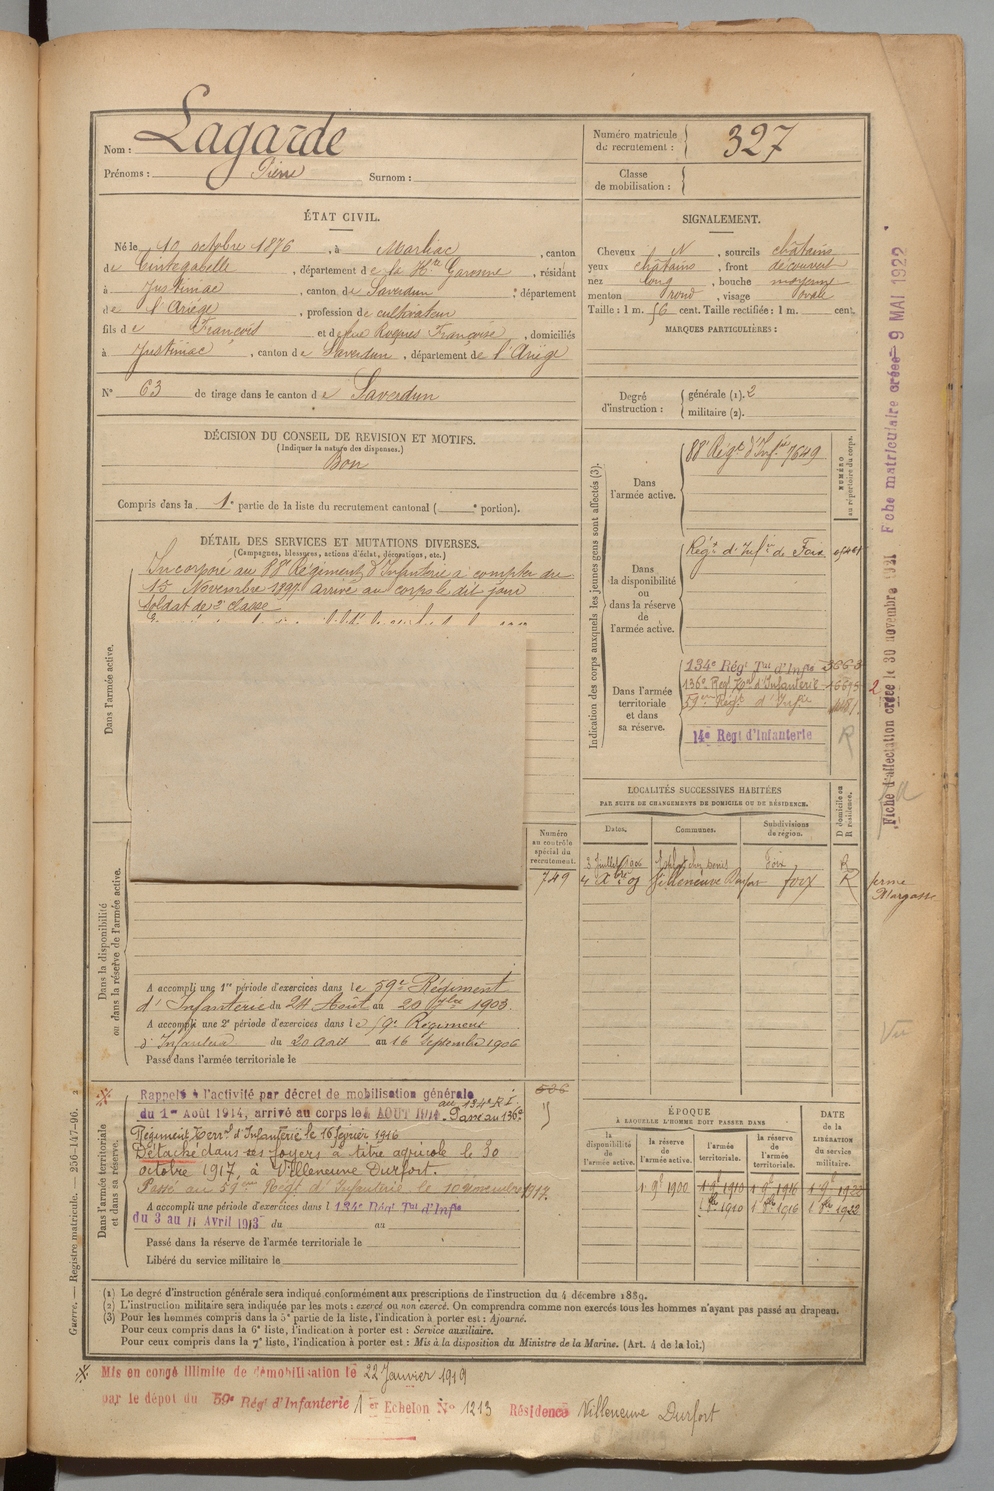 Nom : Lagarde
Prénoms : Pierre Surnom :
Numéro matricule de recrutement : 327
Classe de mobilisation :
ÉTAT CIVIL.
Né le 10 octobre 1876, à Marliac, canton
de Cintegabelle, département de la Hte Garonne, résidant
à Justiniac, canton de Saverdun, département
de l'Ariège, profession de cultivateur
fils de François et de feue Roques Françoise, domiciliés
à Justiniac, canton de Saverdun, département de l'Ariège
N° 63 de tirage dans le canton de Saverdun
SIGNALEMENT.
Cheveux N, sourcils châtains
yeux châtains, front découvert
nez long, bouche moyenne
menton rond, visage ovale
Taille : 1 m. 56 cent. Taille rectifiée : 1 m. cent.
MARQUES PARTICULIÈRES :
Degré d'instruction : générale (1). 2
militaire (2).
DÉCISION DU CONSEIL DE REVISION ET MOTIFS.
(Indiquer la nature des dispenses.)
Bon
Compris dans la 1e partie de la liste du recrutement cantonal ( e portion).
DÉTAIL DES SERVICES ET MUTATIONS DIVERSES.
(Campagnes, blessures, actions d'éclat, décorations, etc.)
Dans l'armée active.
Incorporé au 88e Régiment d'Infanterie à compter du
15 Novembre 1897 arrivé au corps le dit jour
soldat de 2e classe
Indication des corps auxquels les jeunes gens sont affectés (3).
NUMÉRO au répertoire du corps.
Dans l'armée active.
88e Régt d'Infie 7649
Dans la disponibilité ou dans la réserve de l'armée active.
Régt d'Infie de Foix
Dans l'armée territoriale et dans sa réserve.
134e Régt Tal d'Infie
136e Régt Tal d'Infanterie
59eme Régt d'Infie
14e Regt d'Infanterie R
LOCALITÉS SUCCESSIVES HABITÉES
PAR SUITE DE CHANGEMENTS DE DOMICILE OU DE RÉSIDENCE.
Dates. Communes. Subdivisions de région. D domicile ou R résidence.
3 Juillet Foix R
4 Xbre 03 Villeneuve Durfort foix R
ferme
Numéro au contrôle spécial du recrutement.
749
Dans la disponibilité ou dans la réserve de l'armée active.
A accompli une 1re période d'exercices dans le 59e Régiment
d'Infanterie du 24 Août au 20 7bre 1903.
A accompli une 2e période d'exercices dans le 59e Régiment
d'Infanterie du 20 août au 16 Septembre 1906
Passé dans l'armée territoriale le
Dans l'armée territoriale et dans sa réserve.
Rappelé à l'activité par décret de mobilisation générale
du 1er Août 1914, arrivé au corps le 4 AOUT 1914 au 134e R I. Passé au 136e
Régiment Terral d'Infanterie le 16 février 1916
Détaché dans ses foyers à titre agricole le 30
octobre 1917, à Villeneuve Durfort.
Passé au 59eme Régt d'Infanterie le 10 novembre 1917.
A accompli une période d'exercices dans l 134e Régt Tal d'Infie
du 3 au 11 Avril 1913 du au
Passé dans la réserve de l'armée territoriale le
Libéré du service militaire le
ÉPOQUE
À LAQUELLE L'HOMME DOIT PASSER DANS
la disponibilité de l'armée active. la réserve de l'armée active. l'armée territoriale. la réserve de l'armée territoriale.
DATE DE LA LIBÉRATION DU service militaire.
1 9bre 1900 1 9bre 1910 1 9bre 1916 1 9bre 1922
1 8bre 1910 1 8bre 1916 1 8bre 1922
(1) Le degré d'instruction générale sera indiqué conformément aux prescriptions de l'instruction du 4 décembre 1889.
(2) L'instruction militaire sera indiquée par les mots : exercé ou non exercé. On comprendra comme non exercés tous les hommes n'ayant pas passé au drapeau.
(3) Pour les hommes compris dans la 5e partie de la liste, l'indication à porter est : Ajourné.
Pour ceux compris dans la 6e liste, l'indication à porter est : Service auxiliaire.
Pour ceux compris dans la 7e liste, l'indication à porter est : Mis à la disposition du Ministre de la Marine. (Art. 4 de la loi.)
Mis en congé illimité de démobilisation le 22 Janvier 1919
par le dépot du 59e Régt d'Infanterie 1er Echelon N° 1213 Résidence Villeneuve Durfort
Guerre. — Registre matricule. — 256-147-96.
Fiche d'affectation créée le 30 novembre 1921 Fiche matriculaire créée 9 MAI 1922
Vu